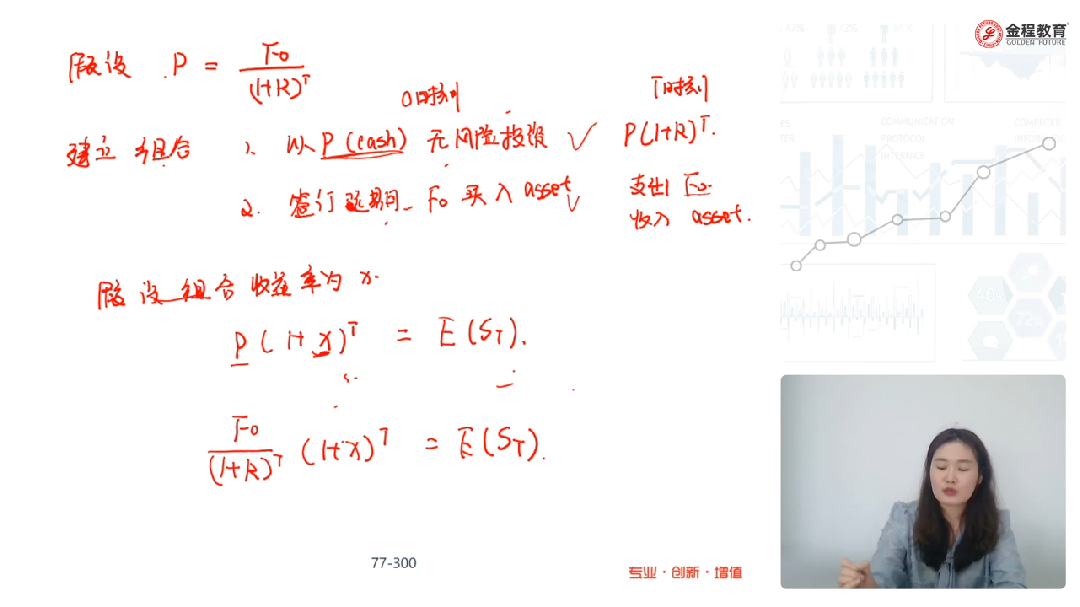 金程教育
GOLDEN FUTURE
假设 P = F₀/(1+R)^T
0时刻 T时刻
建立组合 1. 以P(cash) 无风险投资 ✓ P(1+R)^T.
2. 签订远期 F₀ 买入 asset ✓ 支出 F₀.
收入 asset.
假设组合收益率为 x.
P(1+x)^T = E(S_T).
F₀/(1+R)^T (1+x)^T = E(S_T).
77-300
专业·创新·增值